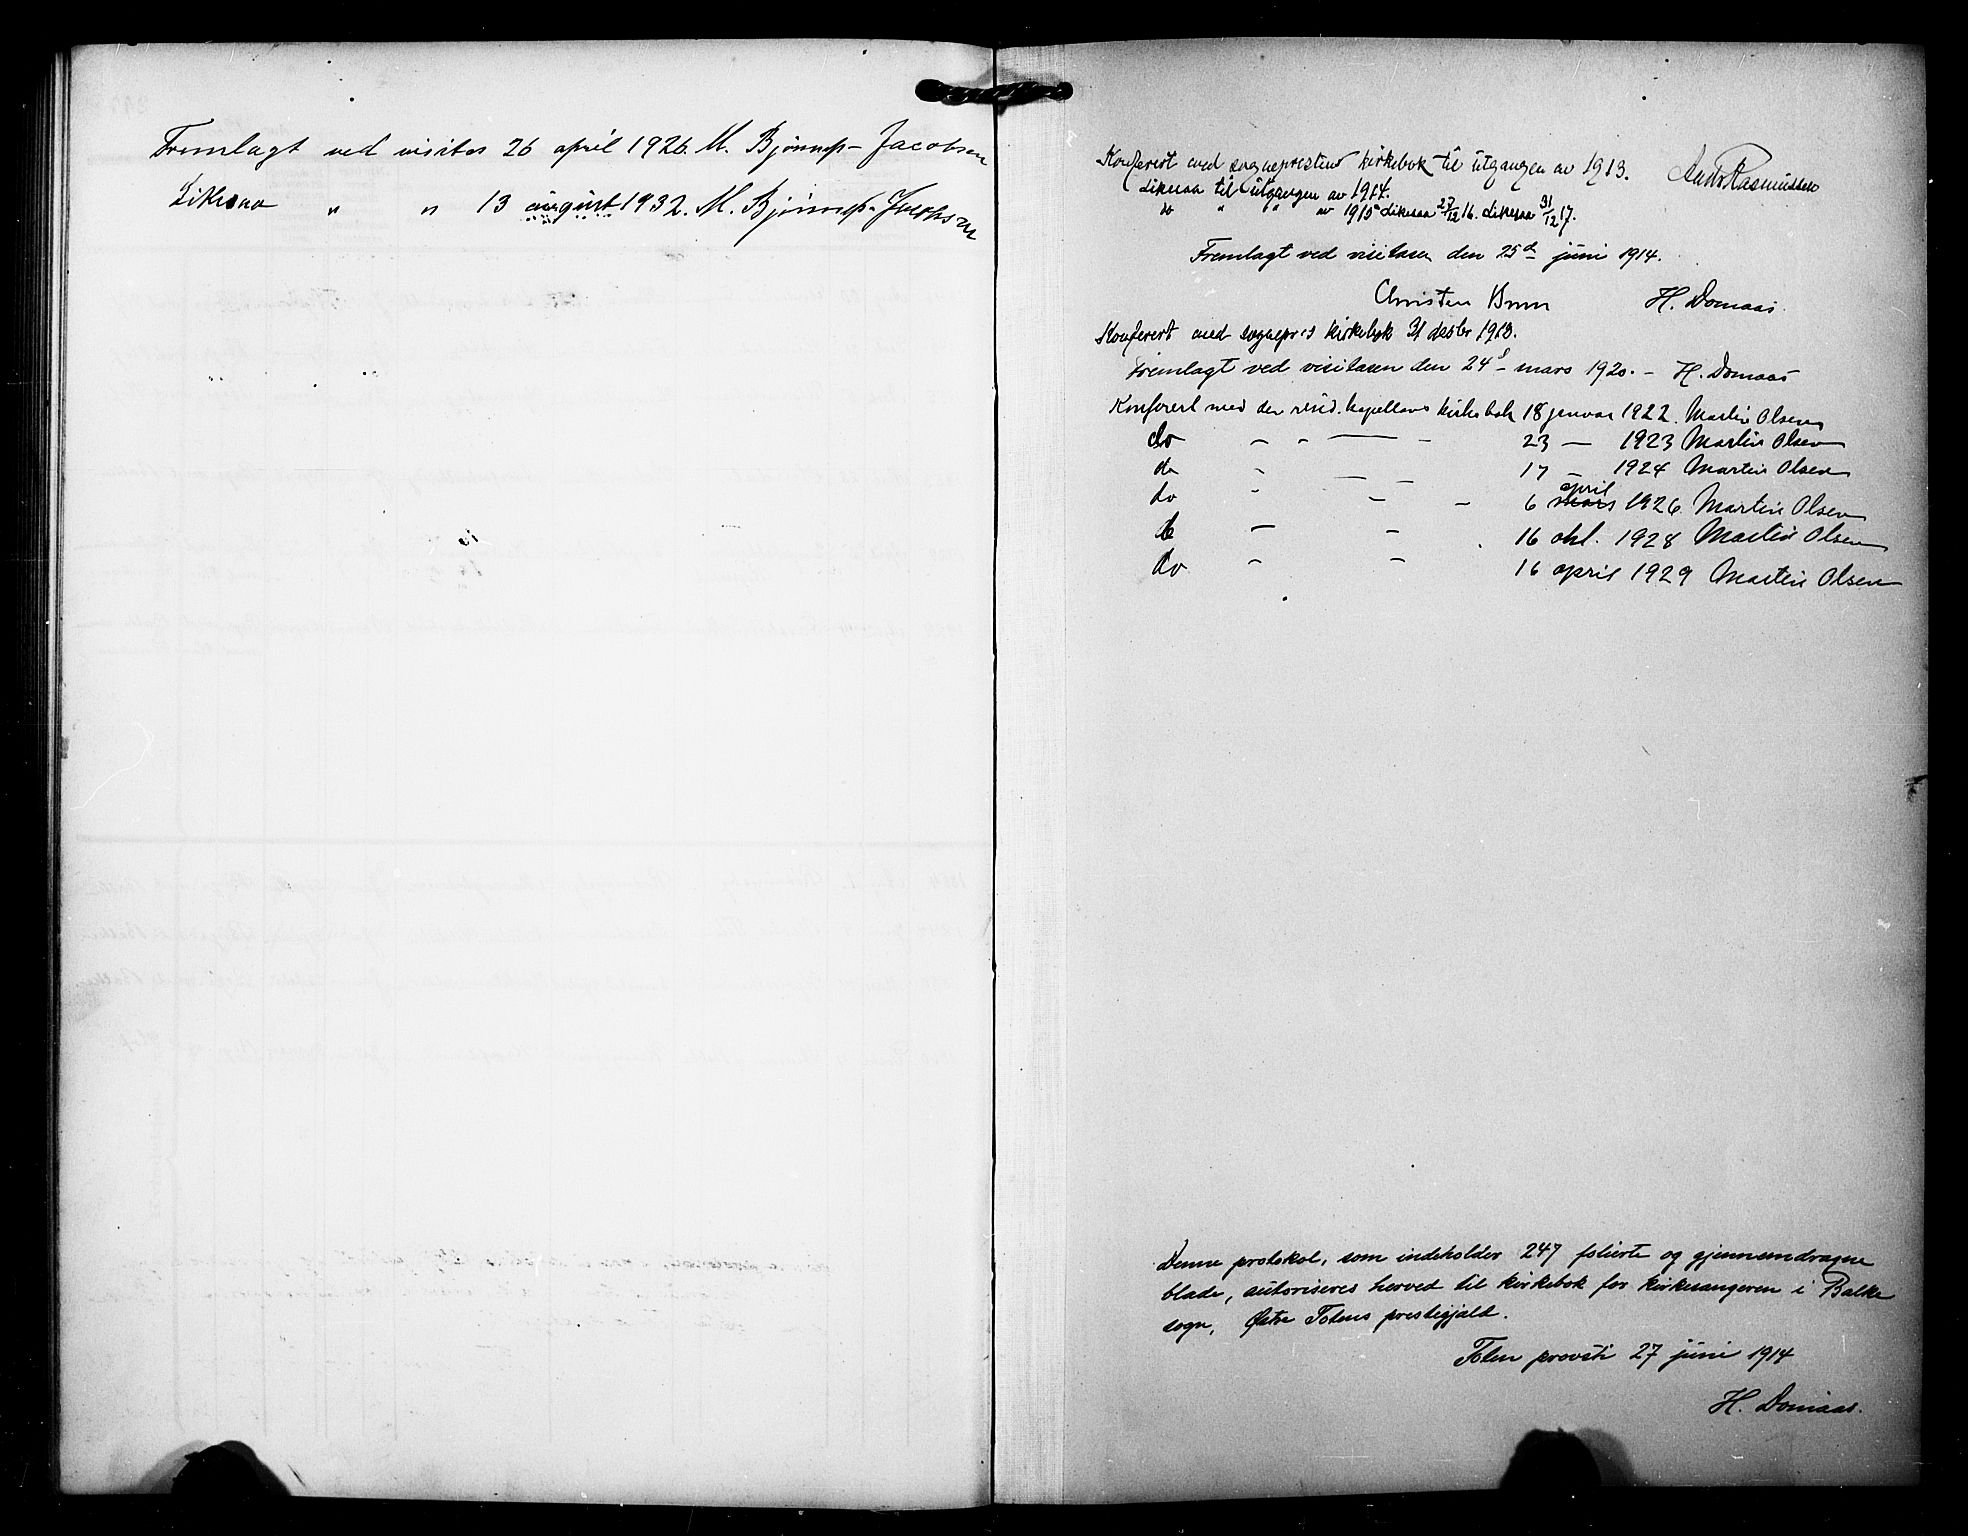 Fremlagt ved visitas 26 april 1926. M. Bjønnes-Jacobsen
Likesaa " " 13 august 1932. M. Bjønnes-Jacobsen
Konferert med sogneprestens kirkebok til utgangen av 1913. Anders Rasmussen
Likesaa til utgangen av 1914.
do " " av 1915 Likesaa 27/12 16. Likesaa 31/12 17.
Fremlagt ved visitasen den 25d juni 1914.
Christen Brun H. Domaas.
Konferert med sognepres kirkebok 31 desbr 1918.
Fremlagt ved visitasen den 24d mars 1920. - H. Domaas
Konferert med den resid. kapellans kirkebok 18 januar 1922. Martin Olsen
do - - — - 23 — 1923 Martin Olsen
do - — - 17 — 1924 Martin Olsen
do - - - 6 april 1926. Martin Olsen
do - - 16 okt. 1928 Martin Olsen
do - - 16 april 1929 Martin Olsen
Denne protokol, som indeholder 247 folierte og gjennemdragne
blade, autoriseres herved til kirkebok for kirkesangeren i Balke
sogn, Østre Totens prestegjeld.
Toten provsti 27 juni 1914
H. Domaas.